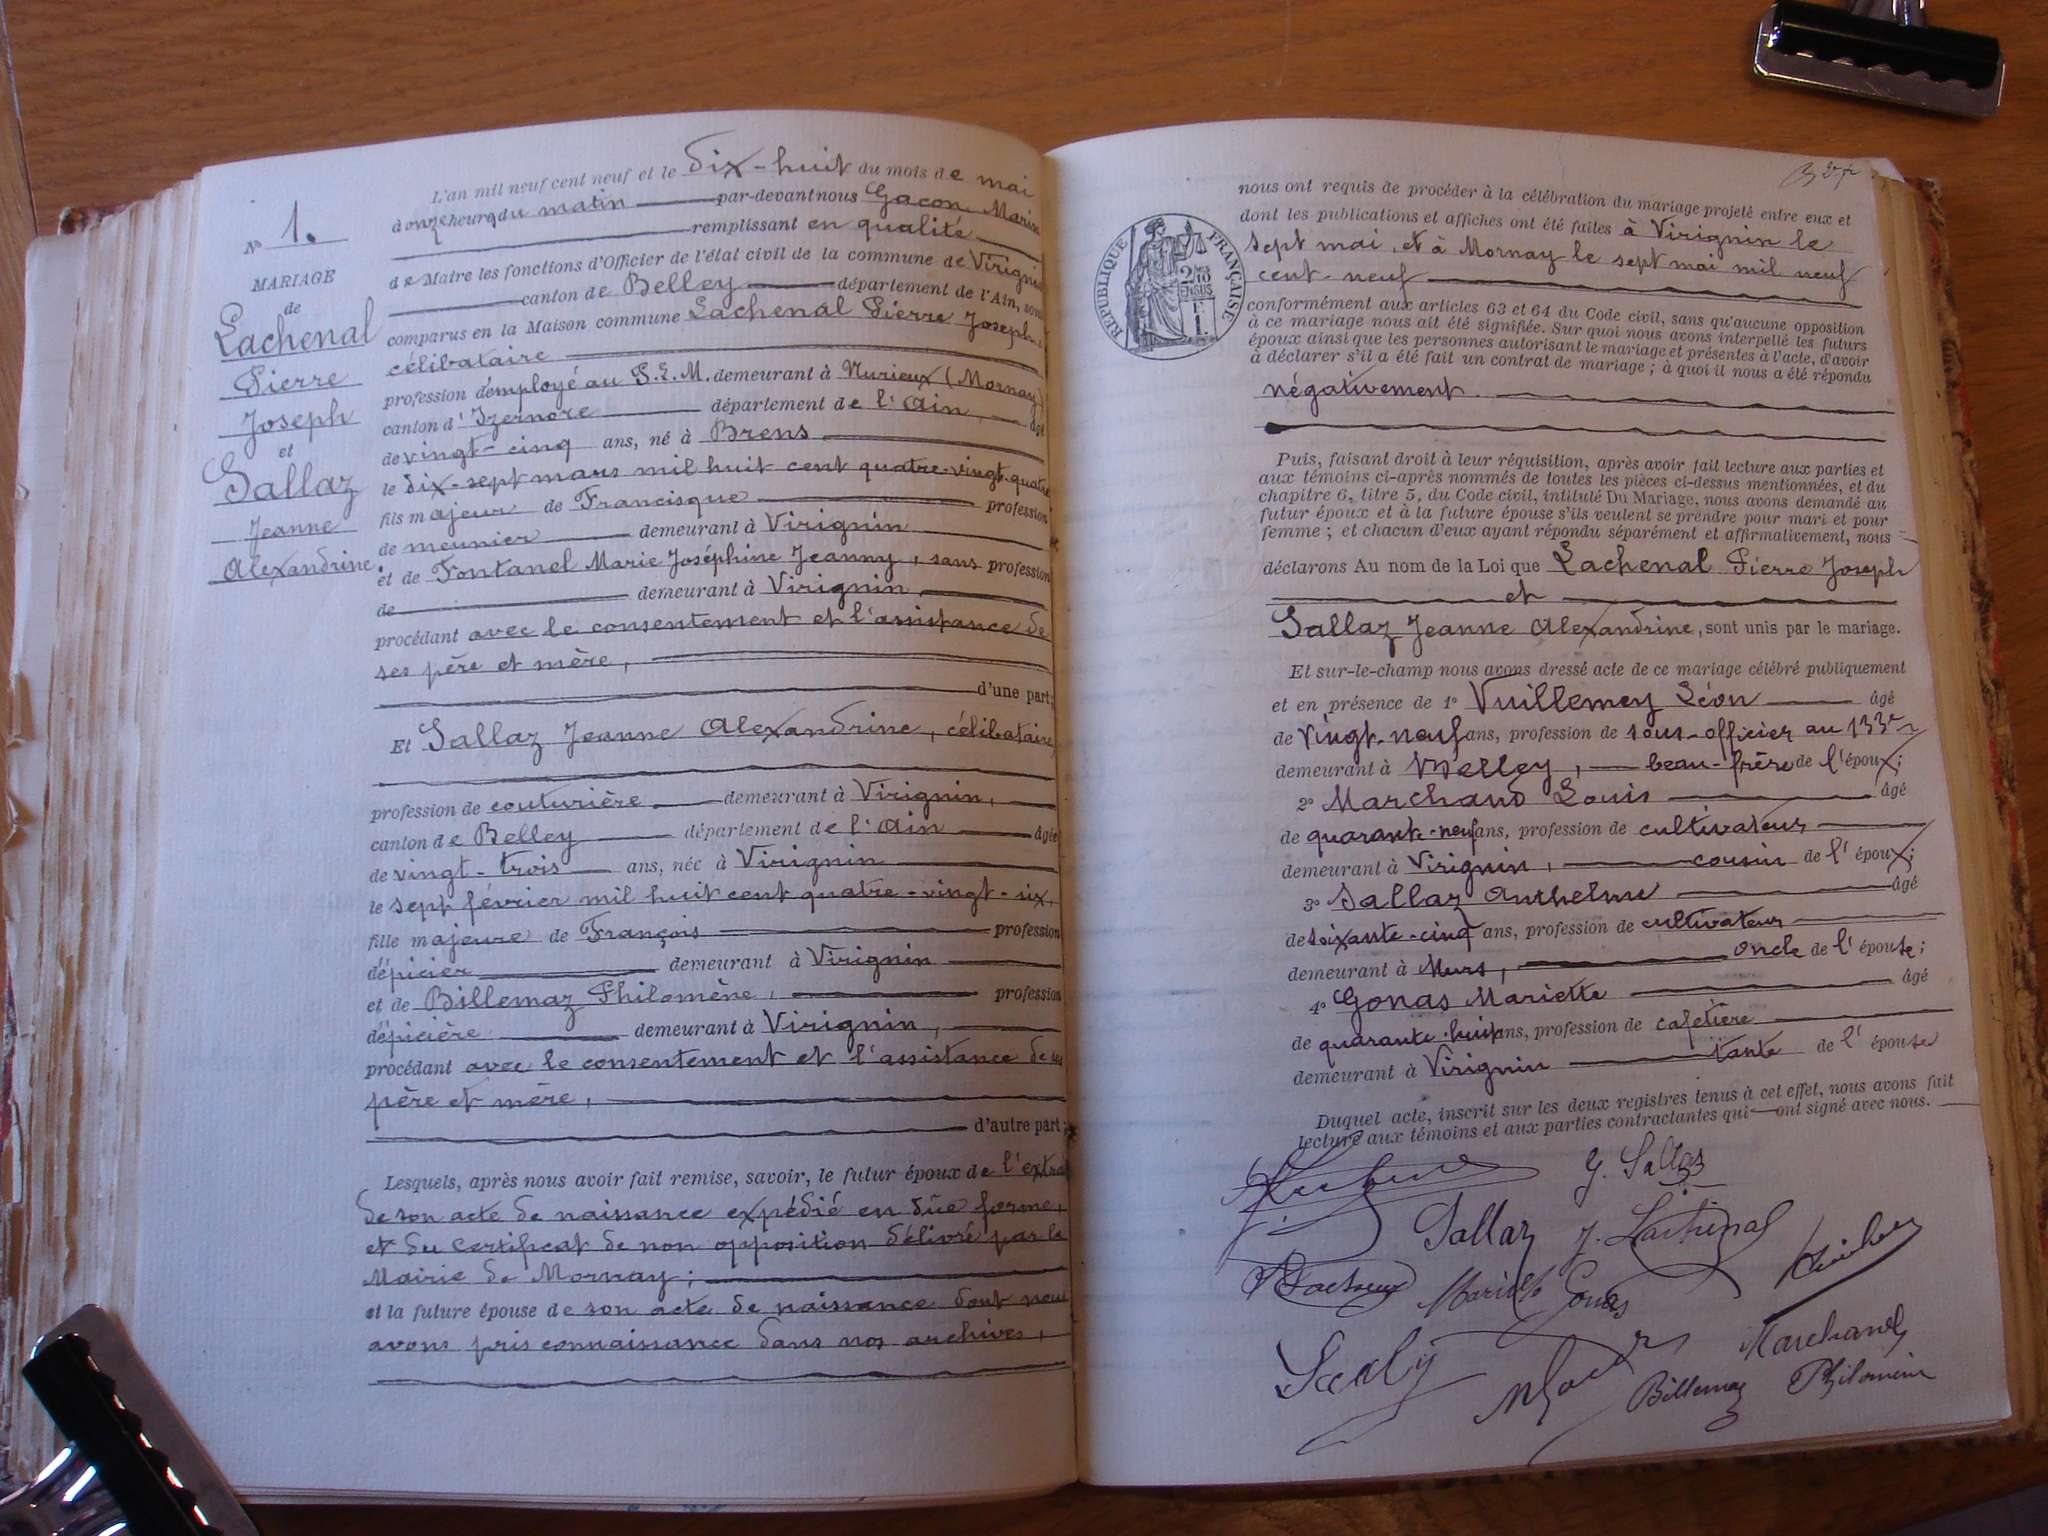 L'an mil neuf cent neuf et le dix-huit du mois de mai
à onze heures du matin par-devant nous Gacon Marin
remplissant en qualité
de Maire les fonctions d'Officier de l'état civil de la commune de Virignin
canton de Belley département de l'Ain, sont
comparus en la Maison commune Lachenal Pierre Joseph
célibataire
profession d'employé au P.L.M. demeurant à Nurieux (Mornay)
canton d'Izernore département de l'Ain, âgé
de vingt-cinq ans, né à Brens
le dix-sept mars mil huit cent quatre-vingt-quatre
fils majeur de Francisque profession
de meunier demeurant à Virignin
et de Fontanel Marie Joséphine Jeanny, sans profession
de demeurant à Virignin,
procédant avec le consentement et l'assistance de
ses père et mère,
d'une part;
Et Sallaz Jeanne Alexandrine, célibataire,
profession de couturière demeurant à Virignin,
canton de Belley département de l'Ain âgée
de vingt-trois ans, née à Virignin
le sept février mil huit cent quatre-vingt-six,
fille majeure de François profession
d'épicier demeurant à Virignin
et de Billemaz Philomène, profession
d'épicière demeurant à Virignin,
procédant avec le consentement et l'assistance de ses
père et mère,
d'autre part;
Lesquels, après nous avoir fait remise, savoir, le futur époux de l'extrait
de son acte de naissance expédié en dûe forme,
et du certificat de non opposition délivré par la
Mairie de Mornay;
et la future épouse de son acte de naissance dont nous
avons pris connaissance dans nos archives,
N° 1.
MARIAGE
de
Lachenal
Pierre
Joseph
et
Sallaz
Jeanne
Alexandrine.
RÉPUBLIQUE FRANÇAISE
2 10mes
EN SUS
1 F.
nous ont requis de procéder à la célébration du mariage projeté entre eux et
dont les publications et affiches ont été faites à Virignin le
sept mai, et à Mornay le sept mai mil neuf
cent-neuf
conformément aux articles 63 et 64 du Code civil, sans qu'aucune opposition
à ce mariage nous ait été signifiée. Sur quoi nous avons interpellé les futurs
époux ainsi que les personnes autorisant le mariage et présentes à l'acte, d'avoir
à déclarer s'il a été fait un contrat de mariage; à quoi il nous a été répondu
négativement.
Puis, faisant droit à leur réquisition, après avoir fait lecture aux parties et
aux témoins ci-après nommés de toutes les pièces ci-dessus mentionnées, et du
chapitre 6, titre 5, du Code civil, intitulé Du Mariage, nous avons demandé au
futur époux et à la future épouse s'ils veulent se prendre pour mari et pour
femme; et chacun d'eux ayant répondu séparément et affirmativement, nous
déclarons Au nom de la Loi que Lachenal Pierre Joseph
et
Sallaz Jeanne Alexandrine, sont unis par le mariage.
Et sur-le-champ nous avons dressé acte de ce mariage célébré publiquement
et en présence de 1° Vuillemey Léon âgé
de vingt-neuf ans, profession de sous-officier au 133e
demeurant à Belley, beau-frère de l'époux;
2° Marchand Louis âgé
de quarante-neuf ans, profession de cultivateur
demeurant à Virignin, cousin de l'époux;
3° Sallaz Anthelme âgé
de soixante-cinq ans, profession de cultivateur
demeurant à Murs, oncle de l'épouse;
4° Gonas Mariette âgé
de quarante-huit ans, profession de cafetière
demeurant à Virignin tante de l'épouse
Duquel acte, inscrit sur les deux registres tenus à cet effet, nous avons fait
lecture aux témoins et aux parties contractantes qui ont signé avec nous.
J. Sallaz
Sallaz J. Lachenal
Gonas
Marchand
Billemaz Philomène